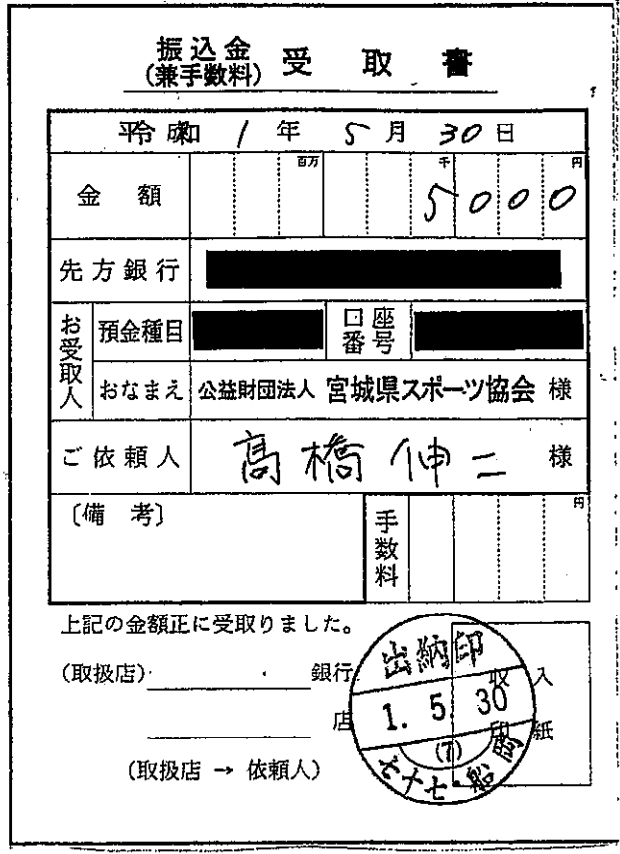 振込金
(兼手数料) 受取書
令和 1 年 5 月 30 日
金額 百万 千 円
5000
先方銀行
お受取人 預金種目 口座番号
おなまえ 公益財団法人 宮城県スポーツ協会 様
ご依頼人 髙橋伸二 様
〔備考〕 手数料 円
上記の金額正に受取りました。
(取扱店) 銀行
店
収入
印紙
(取扱店 → 依頼人)
出納印
1. 5. 30
(7)
七十七・船岡